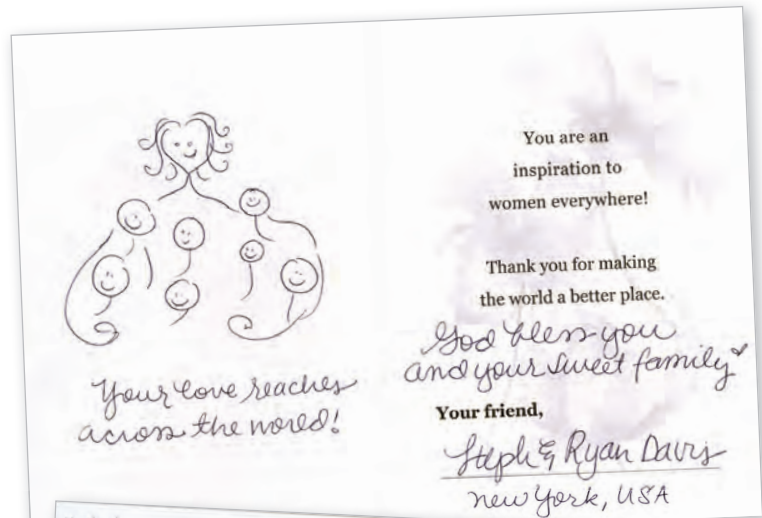 Your love reaches
across the world!
You are an
inspiration to
women everywhere!
Thank you for making
the world a better place.
God bless you
and your sweet family
Your friend,
Steph & Ryan Davis
New York, USA